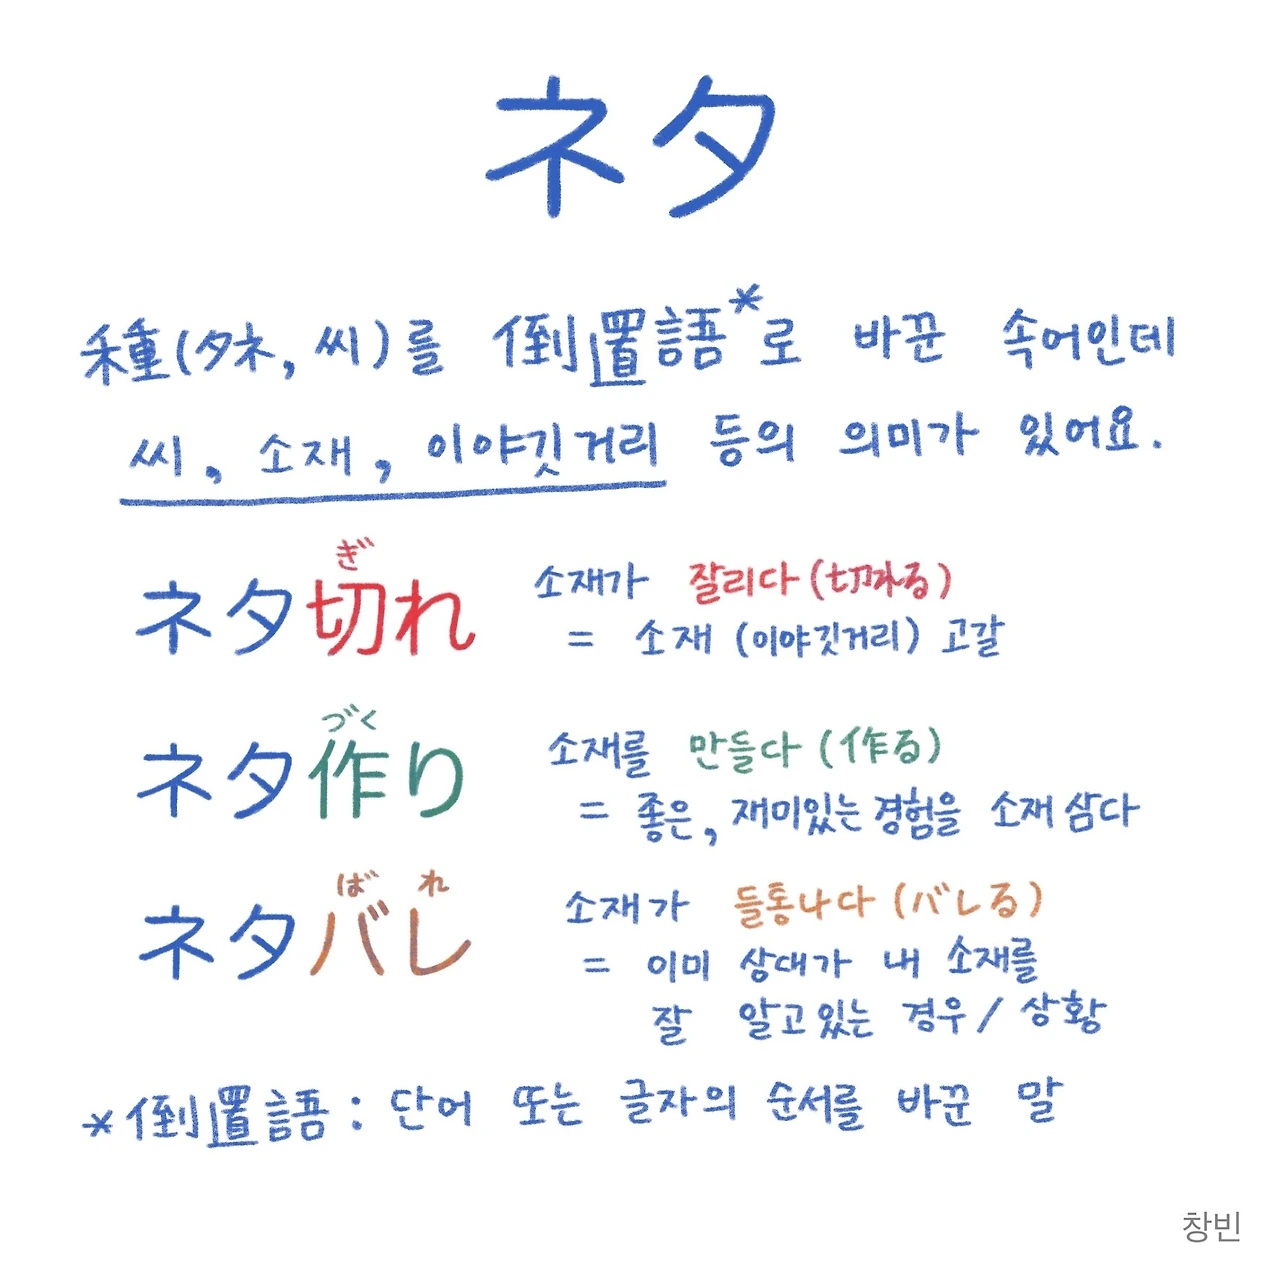 ネタ
種(タネ, 씨)를 倒置語*로 바꾼 속어인데
씨, 소재, 이야깃거리 등의 의미가 있어요.
ぎ
ネタ切れ 소재가 잘리다 (切れる)
= 소재 (이야깃거리) 고갈
づく
ネタ作り 소재를 만들다 (作る)
= 좋은, 재미있는 경험을 소재 삼다
ば れ
ネタバレ 소재가 들통나다 (バレる)
= 이미 상대가 내 소재를
잘 알고있는 경우/상황
*倒置語: 단어 또는 글자의 순서를 바꾼 말
창빈